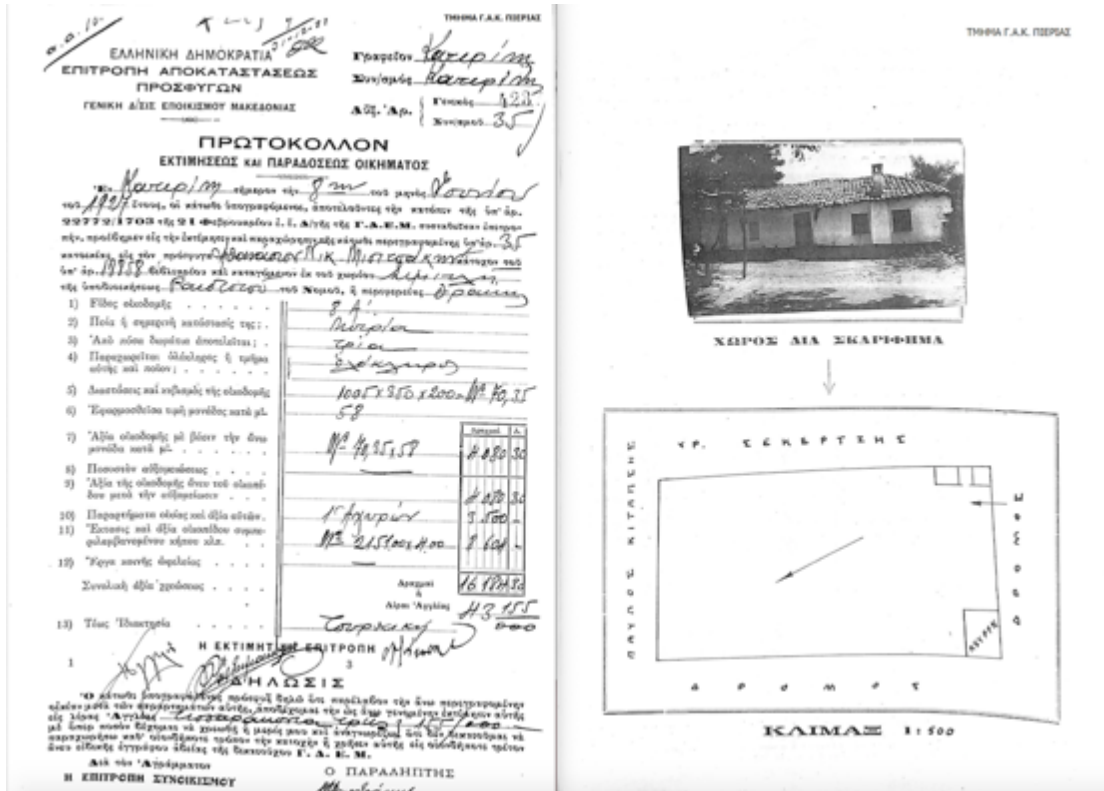 ΤΜΗΜΑ Γ.Α.Κ. ΠΙΕΡΙΑΣ
ΕΛΛΗΝΙΚΗ ΔΗΜΟΚΡΑΤΙΑ
ΕΠΙΤΡΟΠΗ ΑΠΟΚΑΤΑΣΤΑΣΕΩΣ
ΠΡΟΣΦΥΓΩΝ
ΓΕΝΙΚΗ Δ/ΣΙΣ ΕΠΟΙΚΙΣΜΟΥ ΜΑΚΕΔΟΝΙΑΣ
Γραφεῖον Κατερίνη
Συν/σμὸς Κατερίνη
Αὔξ. Ἀρ.
Γενικὸς
Συν/σμοῦ 35
ΠΡΩΤΟΚΟΛΛΟΝ
ΕΚΤΙΜΗΣΕΩΣ ΚΑΙ ΠΑΡΑΔΟΣΕΩΣ ΟΙΚΗΜΑΤΟΣ
Ἐν Κατερίνῃ σήμερον τὴν 8ην τοῦ μηνὸς Ἰουνίου
τοῦ 1927 ἔτους, οἱ κάτωθι ὑπογραφόμενοι, ἀποτελοῦντες τὴν κατόπιν τῆς ὑπ' ἀρ.
22772/1703 τῆς 21 Φεβρουαρίου ἐ. ἔ. Δ/γῆς τῆς Γ.Δ.Ε.Μ. συσταθεῖσαν ἐπιτρο-
πήν, προέβημεν εἰς τὴν ἐκτίμησιν καὶ παραχώρησιν τῆς κάτωθι περιγραφομένης ὑπ' ἀρ. 35
κατοικίας, εἰς τὸν πρόσφυγα Ἀθανάσιον Νικ. κάτοχον τοῦ
ὑπ' ἀρ. βιβλιαρίου καὶ καταγόμενον ἐκ τοῦ χωρίου
τῆς ὑποδιοικήσεως Ραιδεστοῦ τοῦ Νομοῦ, ἢ περιφερείας Θράκης
1) Εἶδος οἰκοδομῆς
2) Ποία ἡ σημερινὴ κατάστασίς της; Μετρία
3) Ἀπὸ πόσα δωμάτια ἀποτελεῖται; τρία
4) Παραχωρεῖται ὁλόκληρος ἢ τμῆμα
αὐτῆς καὶ ποῖον; ὁλόκληρος
5) Διαστάσεις καὶ κυβισμὸς τῆς οἰκοδομῆς 1005x350x200= Μ3 70,35
6) Ἐφαρμοσθεῖσα τιμὴ μονάδος κατὰ μ3. 58
Δραχμαὶ Λ.
7) Ἀξία οἰκοδομῆς μὲ βάσιν τὴν ἄνω
μονάδα κατὰ μ3. Μ3 70,35x58 4 080 30
8) Ποσοστὸν αὐξομειώσεως
9) Ἀξία τῆς οἰκοδομῆς ἄνευ τοῦ οἰκοπέ-
δου μετὰ τὴν αὐξομείωσιν 4 080 30
10) Παραρτήματα οἰκίας καὶ ἀξία αὐτῶν. 1 Ἀχυρών 3 500 -
11) Ἔκτασις καὶ ἀξία οἰκοπέδου συμπε-
ριλαμβανομένου κήπου κλπ. 2151.00x4.00 8 604 -
12) Ἔργα κοινῆς ὠφελείας
Συνολικὴ ἀξία χρεώσεως Δραχμαὶ 16 184 30
ἢ
Λίραι Ἀγγλίας 43 155/000
13) Τέως Ἰδιοκτησία Τουρκική
Η ΕΚΤΙΜΗΤΙΚΗ ΕΠΙΤΡΟΠΗ
1 3
ΔΗΛΩΣΙΣ
Ὁ κάτωθι ὑπογραφόμενος πρόσφυξ δηλῶ ὅτι παρέλαβον τὴν ἄνω περιγραφομένην
οἰκίαν μετὰ τῶν παραρτημάτων αὐτῆς, ἀποδέχομαι τὴν ὡς ἄνω γενομένην ἐκτίμησιν αὐτῆς
εἰς λίρας Ἀγγλίας τεσσαράκοντα τρεῖς 155/000
μὲ ὅπερ ποσὸν δέχομαι νὰ χρεωθῇ ἡ μερίς μου καὶ ἀναγνωρίζω, ὅτι δὲν δικαιοῦμαι νὰ
παραχωρήσω καθ' οἱονδήποτε τρόπον τὴν κατοχὴν ἢ χρῆσιν αὐτῆς εἰς οἱονδήποτε τρίτον
ἄνευ εἰδικῆς ἐγγράφου ἀδείας τῆς δικαιούχου Γ. Δ. Ε. Μ.
Διὰ τὸν Ἀγράμματον
Η ΕΠΙΤΡΟΠΗ ΣΥΝΟΙΚΙΣΜΟΥ
Ο ΠΑΡΑΛΗΠΤΗΣ
ΤΜΗΜΑ Γ.Α.Κ. ΠΙΕΡΙΑΣ
ΧΩΡΟΣ ΔΙΑ ΣΚΑΡΙΦΗΜΑ
ΧΡ. ΣΕΚΕΡΤΖΗΣ
ΔΡΟΜΟΣ
ΚΛΙΜΑΞ 1:500